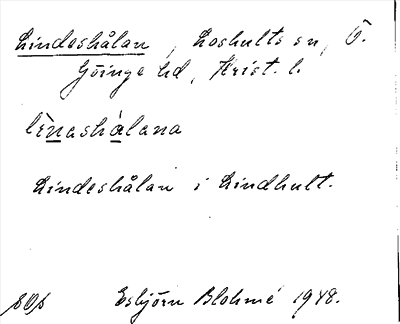 Lindeshålan, Loshults sn, Ö.
Göinge hd, Krist. l.
lìnashálana
Lindeshålan i Lindhult.
Esbjörn Blohmé 1948.